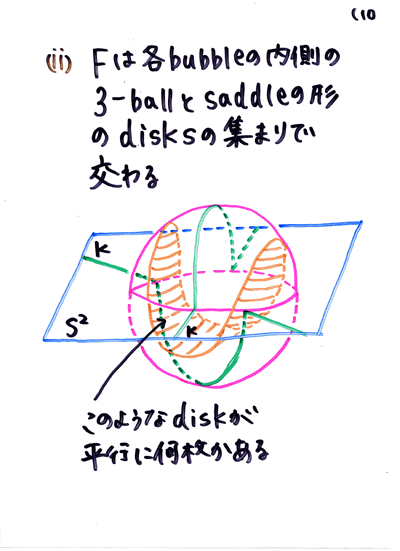 (10
(ii) Fは各bubbleの内側の
3-ballとsaddleの形
のdisksの集まりで
交わる
K
S²
K
このようなdiskが
平行に何枚かある